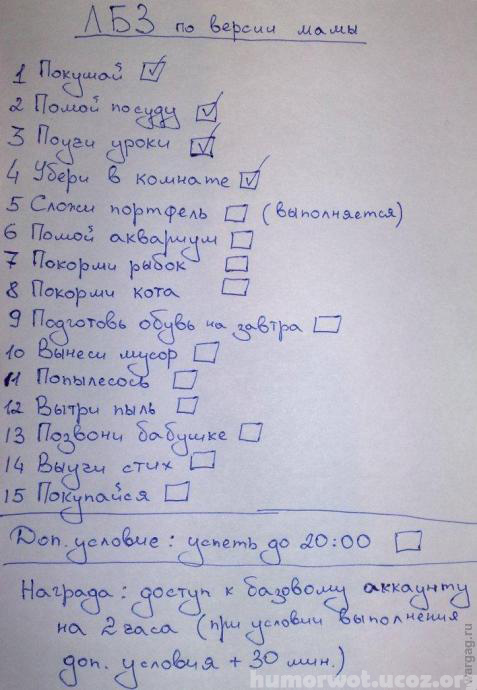 ЛБЗ по версии мамы
1 Покушай
2 Помой посуду
3 Поучи уроки
4 Убери в комнате
5 Сложи портфель (выполняется)
6 Помой аквариум
7 Покорми рыбок
8 Покорми кота
9 Подготовь обувь на завтра
10 Вынеси мусор
11 Попылесось
12 Вытри пыль
13 Позвони бабушке
14 Выучи стих
15 Покупайся
Доп. условие: успеть до 20:00
Награда: доступ к базовому аккаунту
на 2 часа (при условии выполнения
доп. условия + 30 мин.)
humorwot.ucoz.org